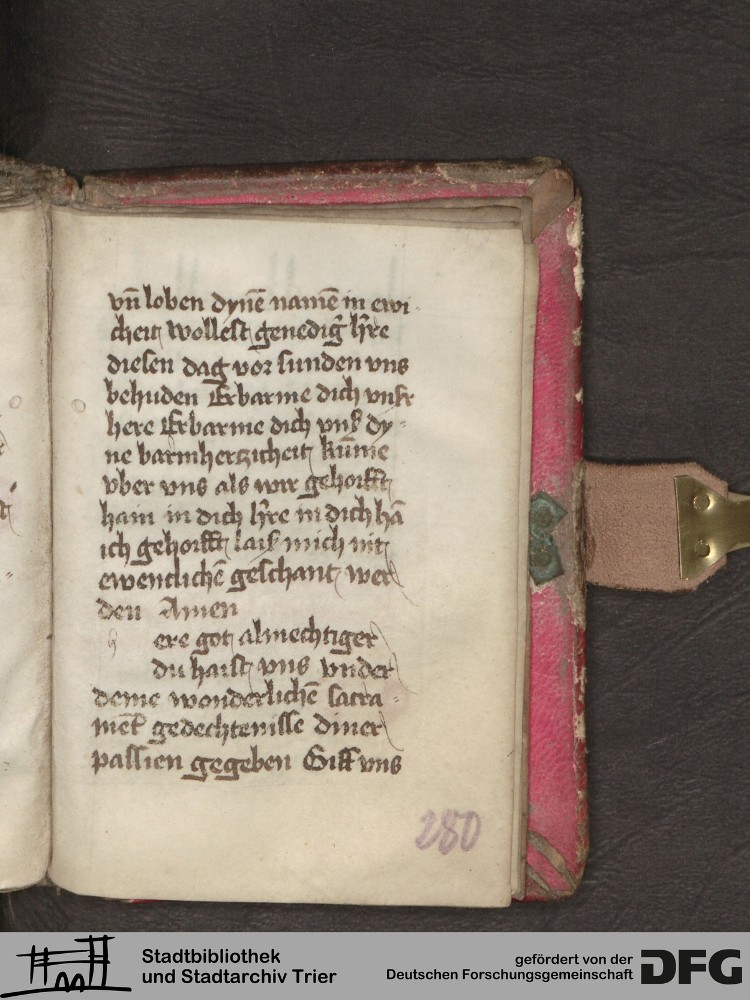 vn̄ loben dynē namē in ewi
cheit wollest genediḡ hr̄e
diesen dag vor sunden vns
behuden Erbarme dich vnser
here Erbarme dich vnser dy-
ne barmherzicheit kūme
vber vns als wir gehoifft
hain in dich hr̄e in dich hā
ich gehoifft lais mich nit
ewentlichē geschant wer
den Amen
h ere got almechtiger
du haist vns vnder
deme wonderlichē sacra-
mēt gedechtenisse diner
passien gegeben Giff vns
280
Stadtbibliothek
und Stadtarchiv Trier
gefördert von der
Deutschen Forschungsgemeinschaft
DFG